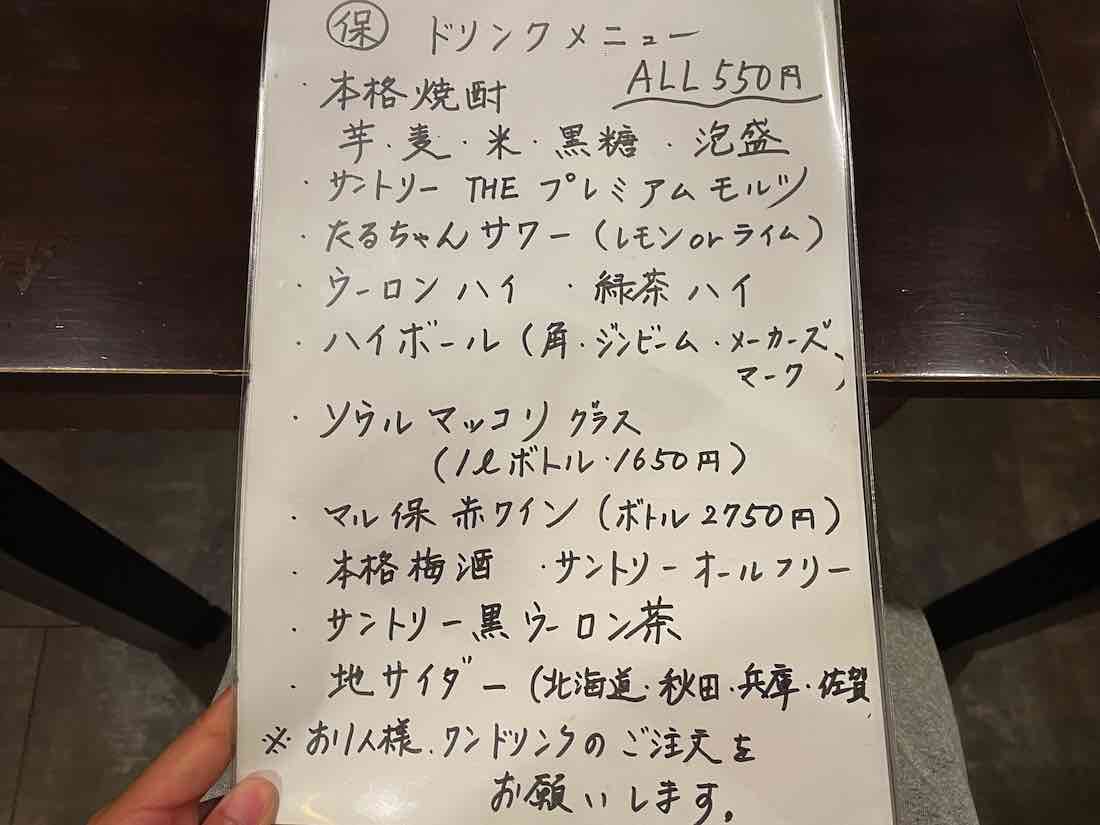 ㊩ ドリンクメニュー
ALL 550円
・本格焼酎
芋・麦・米・黒糖・泡盛
・サントリー THE プレミアムモルツ
・たるちゃんサワー（レモンorライム）
・ウーロンハイ ・緑茶ハイ
・ハイボール（角・ジンビーム・メーカーズ
マーク）
・ソウルマッコリ グラス
（1ℓボトル・1650円）
・マル保 赤ワイン（ボトル2750円）
・本格梅酒 ・サントリーオールフリー
・サントリー黒ウーロン茶
・地サイダー（北海道・秋田・兵庫・佐賀
※お1人様、ワンドリンクのご注文を
お願いします。